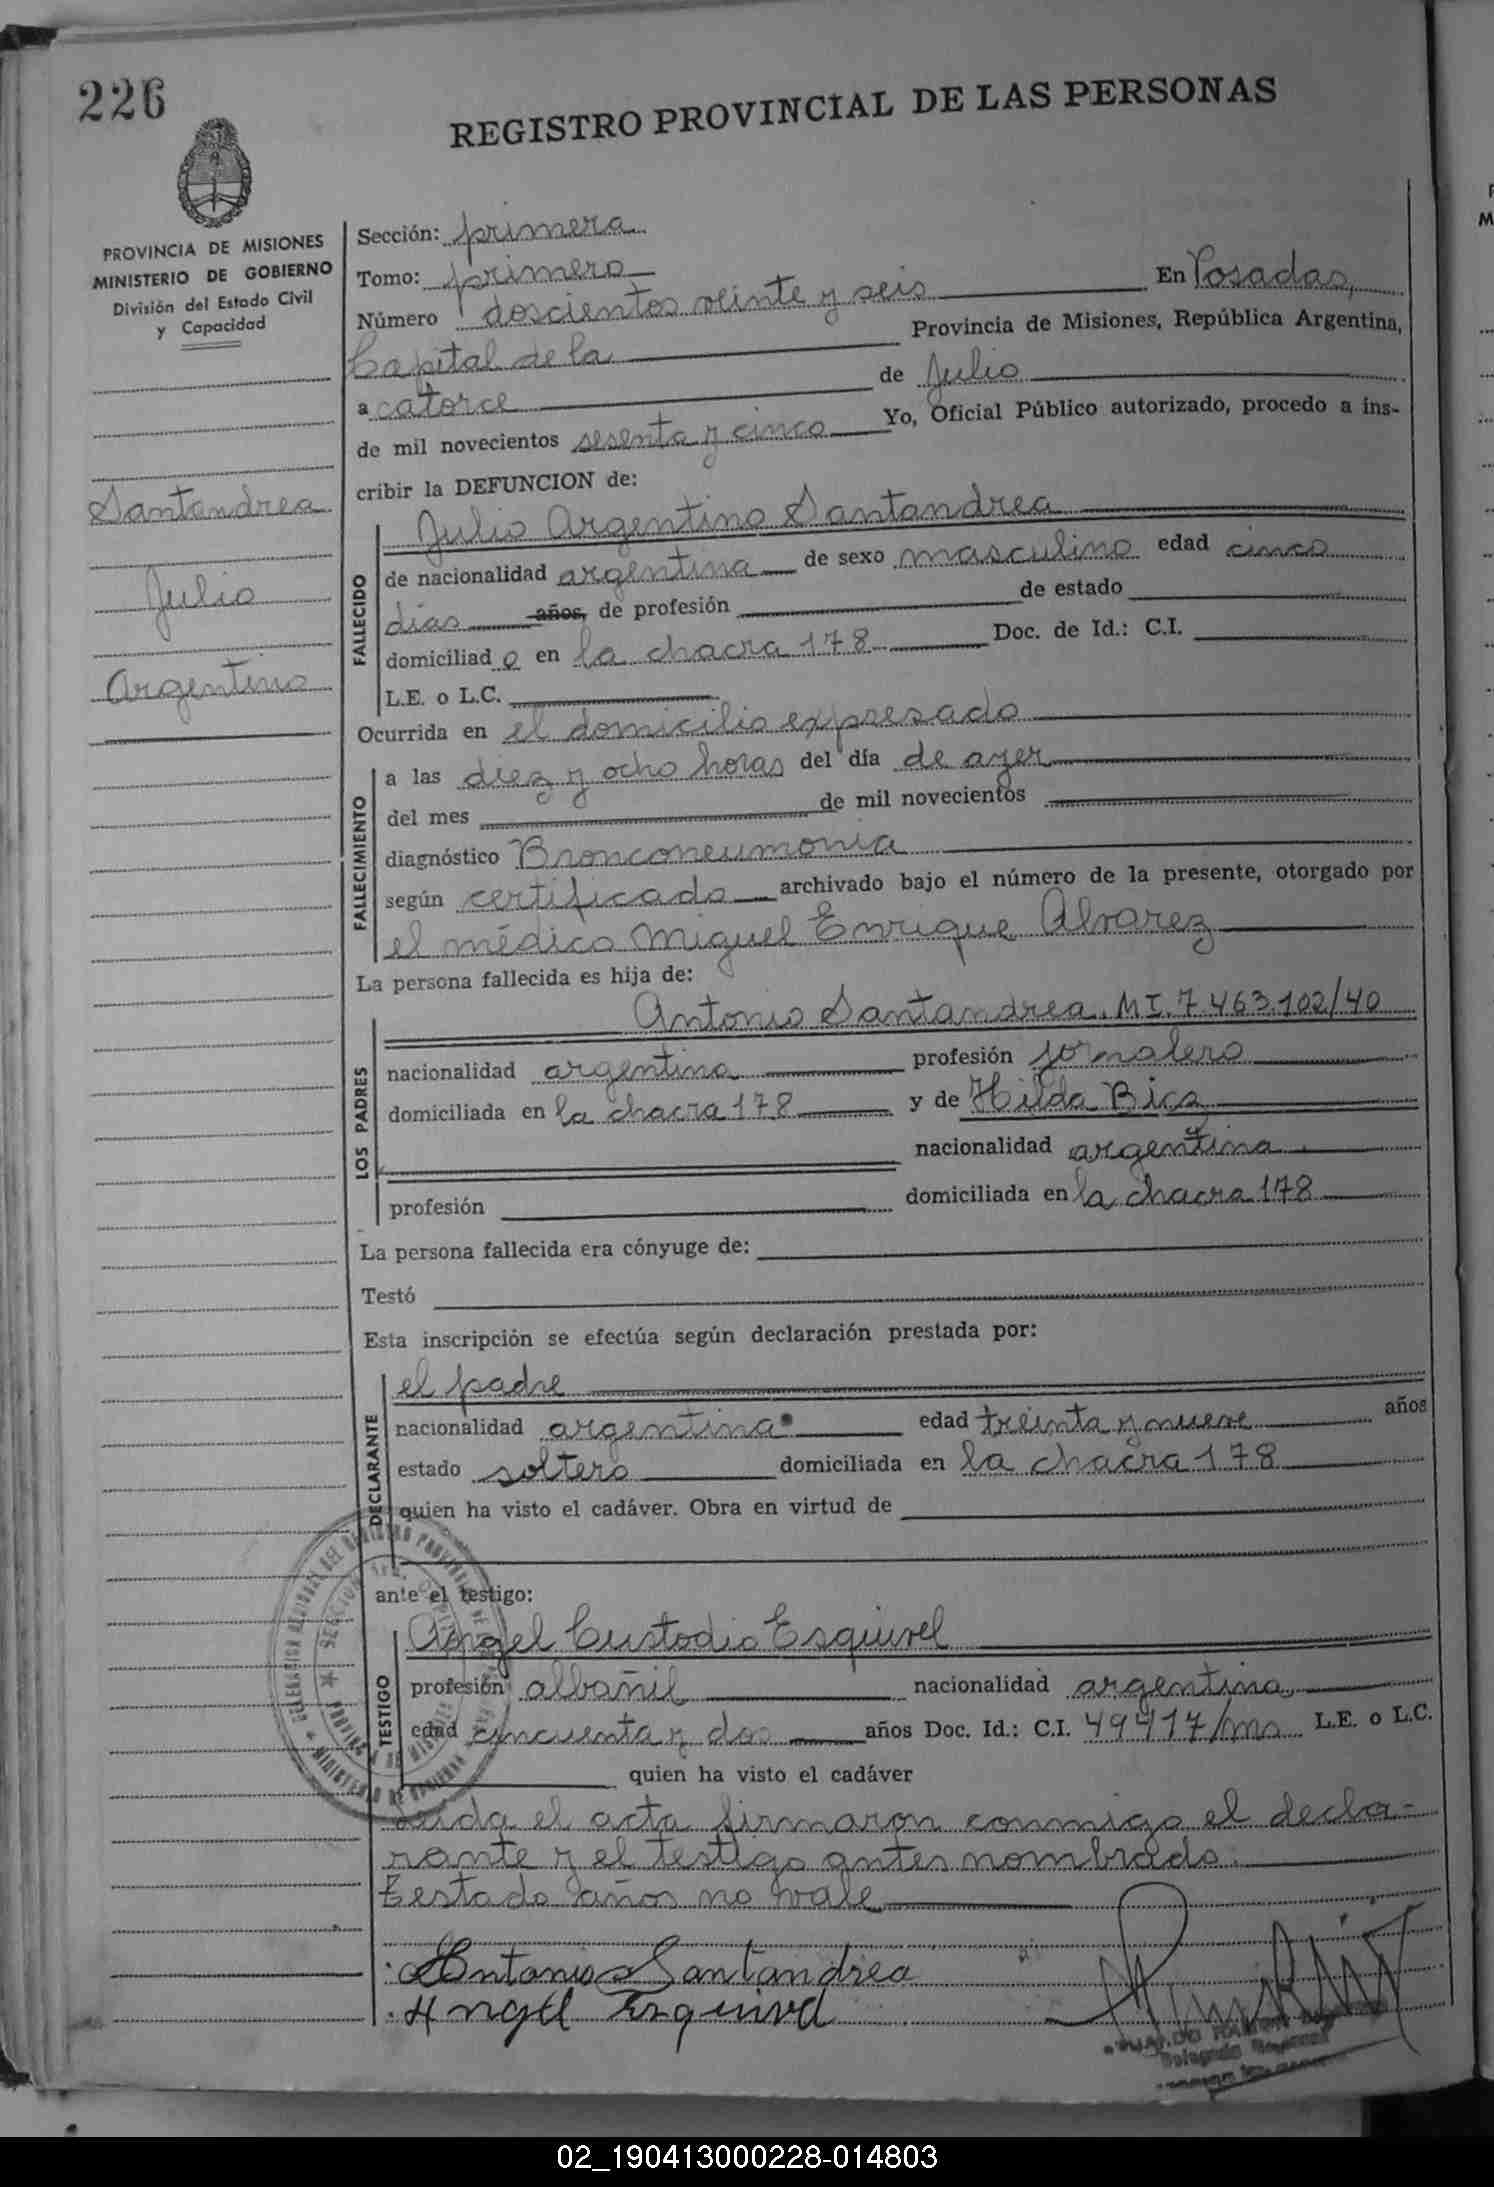 226
REGISTRO PROVINCIAL DE LAS PERSONAS
PROVINCIA DE MISIONES
MINISTERIO DE GOBIERNO
División del Estado Civil
y Capacidad
Santandrea
Julio
Argentino
Sección: primera
Tomo: primero
Número doscientos veinte y seis En Posadas,
Capital de la Provincia de Misiones, República Argentina,
a catorce de Julio
de mil novecientos sesenta y cinco Yo, Oficial Público autorizado, procedo a ins-
cribir la DEFUNCION de:
FALLECIDO
Julio Argentino Santandrea
de nacionalidad argentina de sexo masculino edad cinco
días años, de profesión de estado
domiciliado en la chacra 178 Doc. de Id.: C.I.
L.E. o L.C.
Ocurrida en el domicilio expresado
FALLECIMIENTO
a las diez y ocho horas del día de ayer
del mes de mil novecientos
diagnóstico Bronconeumonia
según certificado archivado bajo el número de la presente, otorgado por
el médico Miguel Enrique Alvarez
La persona fallecida es hija de:
LOS PADRES
Antonio Santandrea. MI. 7.463.102/40
nacionalidad argentina profesión jornalero
domiciliada en la chacra 178 y de Hilda Bicz
nacionalidad argentina
profesión domiciliada en la chacra 178
La persona fallecida era cónyuge de:
Testó
Esta inscripción se efectúa según declaración prestada por:
DECLARANTE
el padre
nacionalidad argentina edad treinta y nueve años
estado soltero domiciliada en la chacra 178
quien ha visto el cadáver. Obra en virtud de
ante el testigo:
TESTIGO
Angel Custodio Esquivel
profesión albañil nacionalidad argentina
edad cincuenta y dos años Doc. Id.: C.I. 49417/mns L.E. o L.C.
quien ha visto el cadáver
Leida el acta firmaron conmigo el decla-
rante y el testigo antes nombrado.
Testado años no vale
Antonio Santandrea
Angel Esquivel
02_190413000228-014803